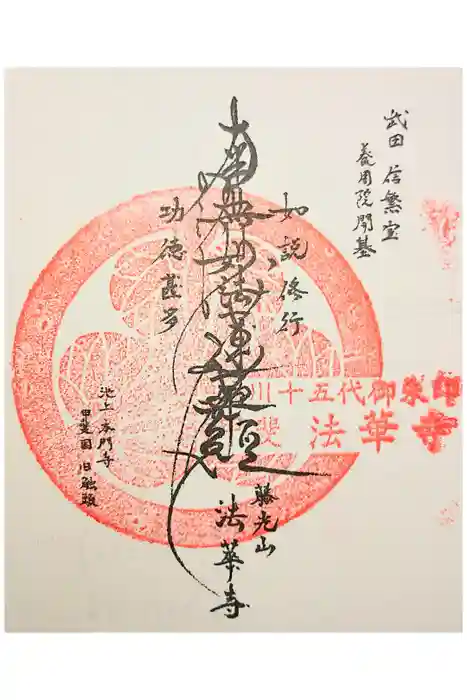 武田信繁室
養周院開基
如説修行
南無妙法蓮華経
功徳甚多
池上本門寺
甲斐国旧触頭
勝光山
法華寺
川十五代御朱印
斐 法華寺